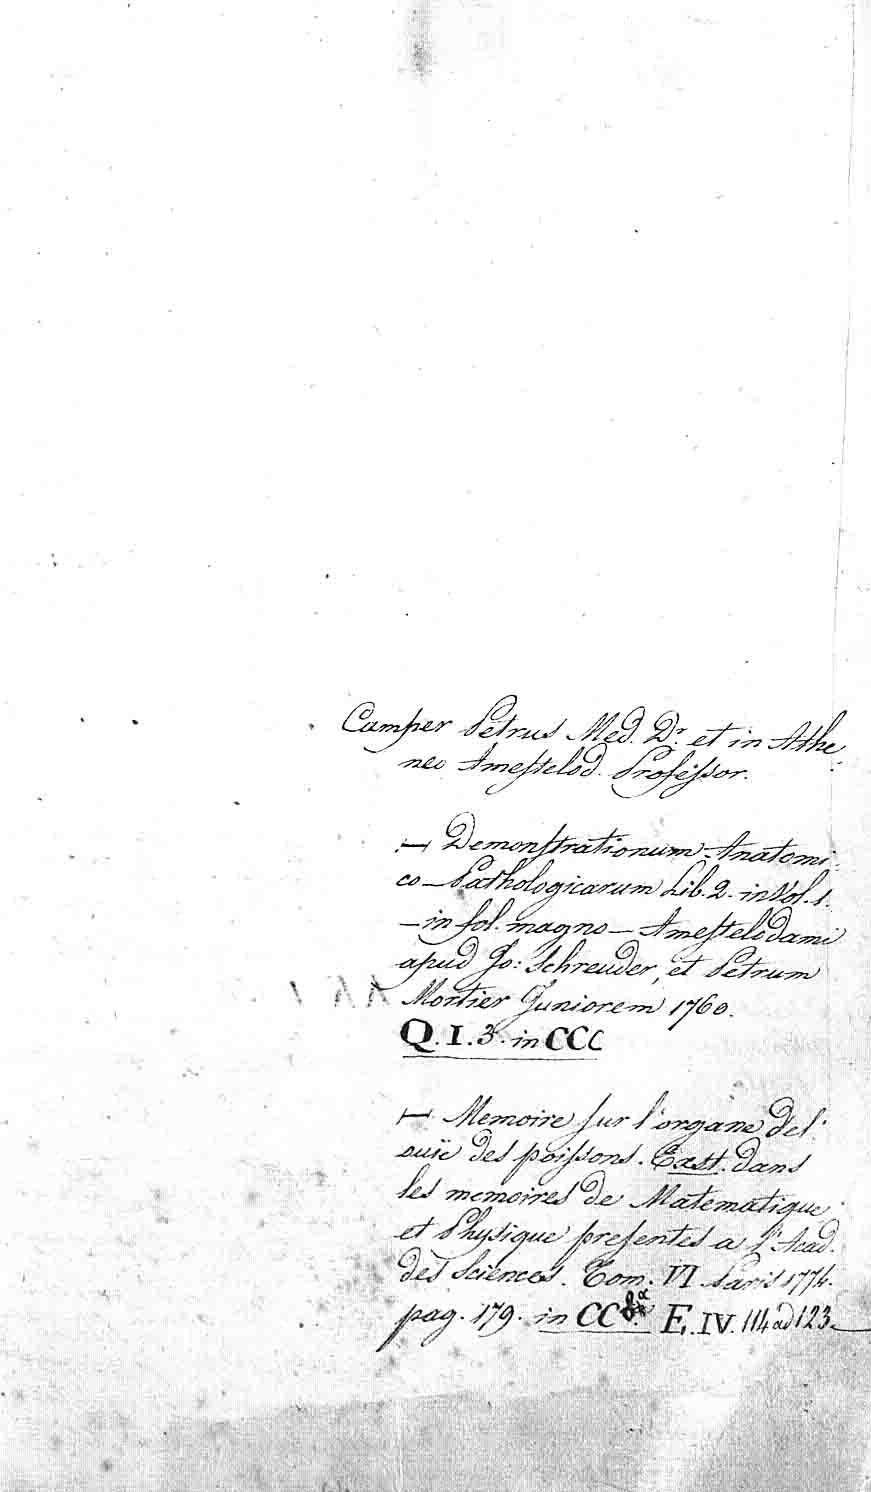 Camper Petrus Med. Dr. et in Athe:
neo Amestelod. Professor.
— Demonstrationum Anatomi:
co-Pathologicarum Lib. 2. in Vol. 1.
— in fol. magno — Amestelodami
apud Jo: Schreuder, et Petrum
Mortier Juniorem 1760.
Q. I. 3. in CCC
— Memoire sur l'organe del'
ouïe des poissons. Exst. dans
les memoires de Matematique
et Physique presentes a l'Acad.
des Sciences. Tom. VI. Paris 1774.
pag. 179. in CC E. IV. 114 ad 123.